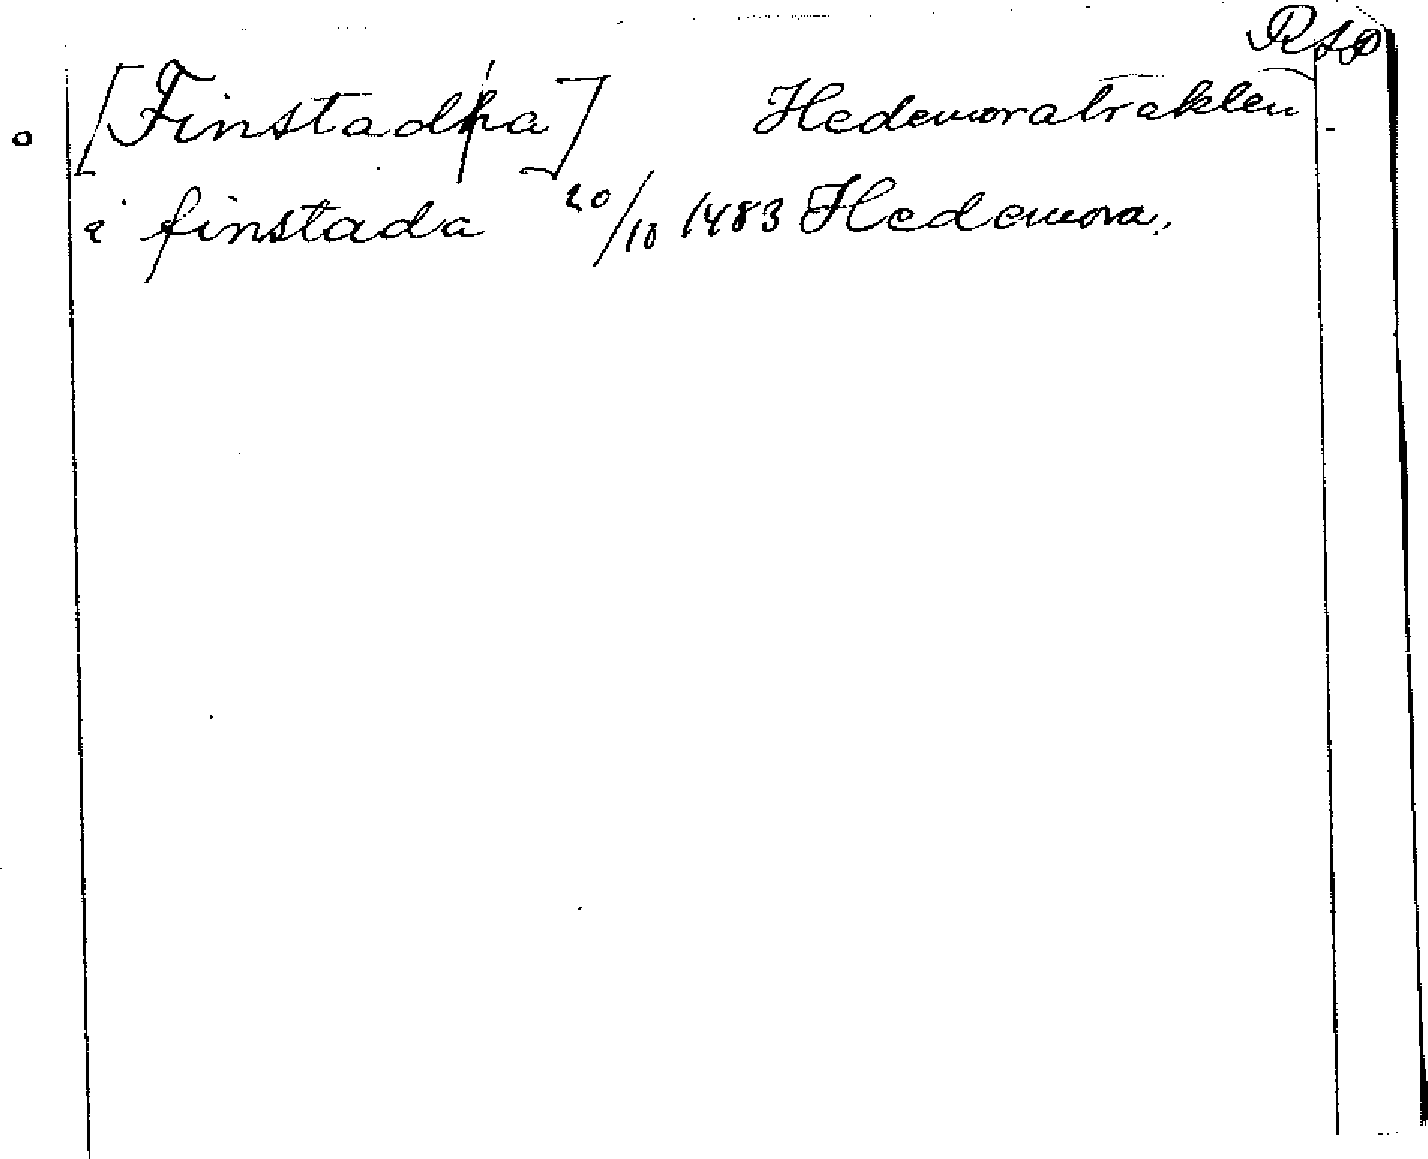 RAP
[Finstadha] Hedemoratrakten
i finstada 20/10 1483 Hedemora.